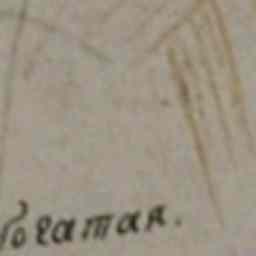 богатая.